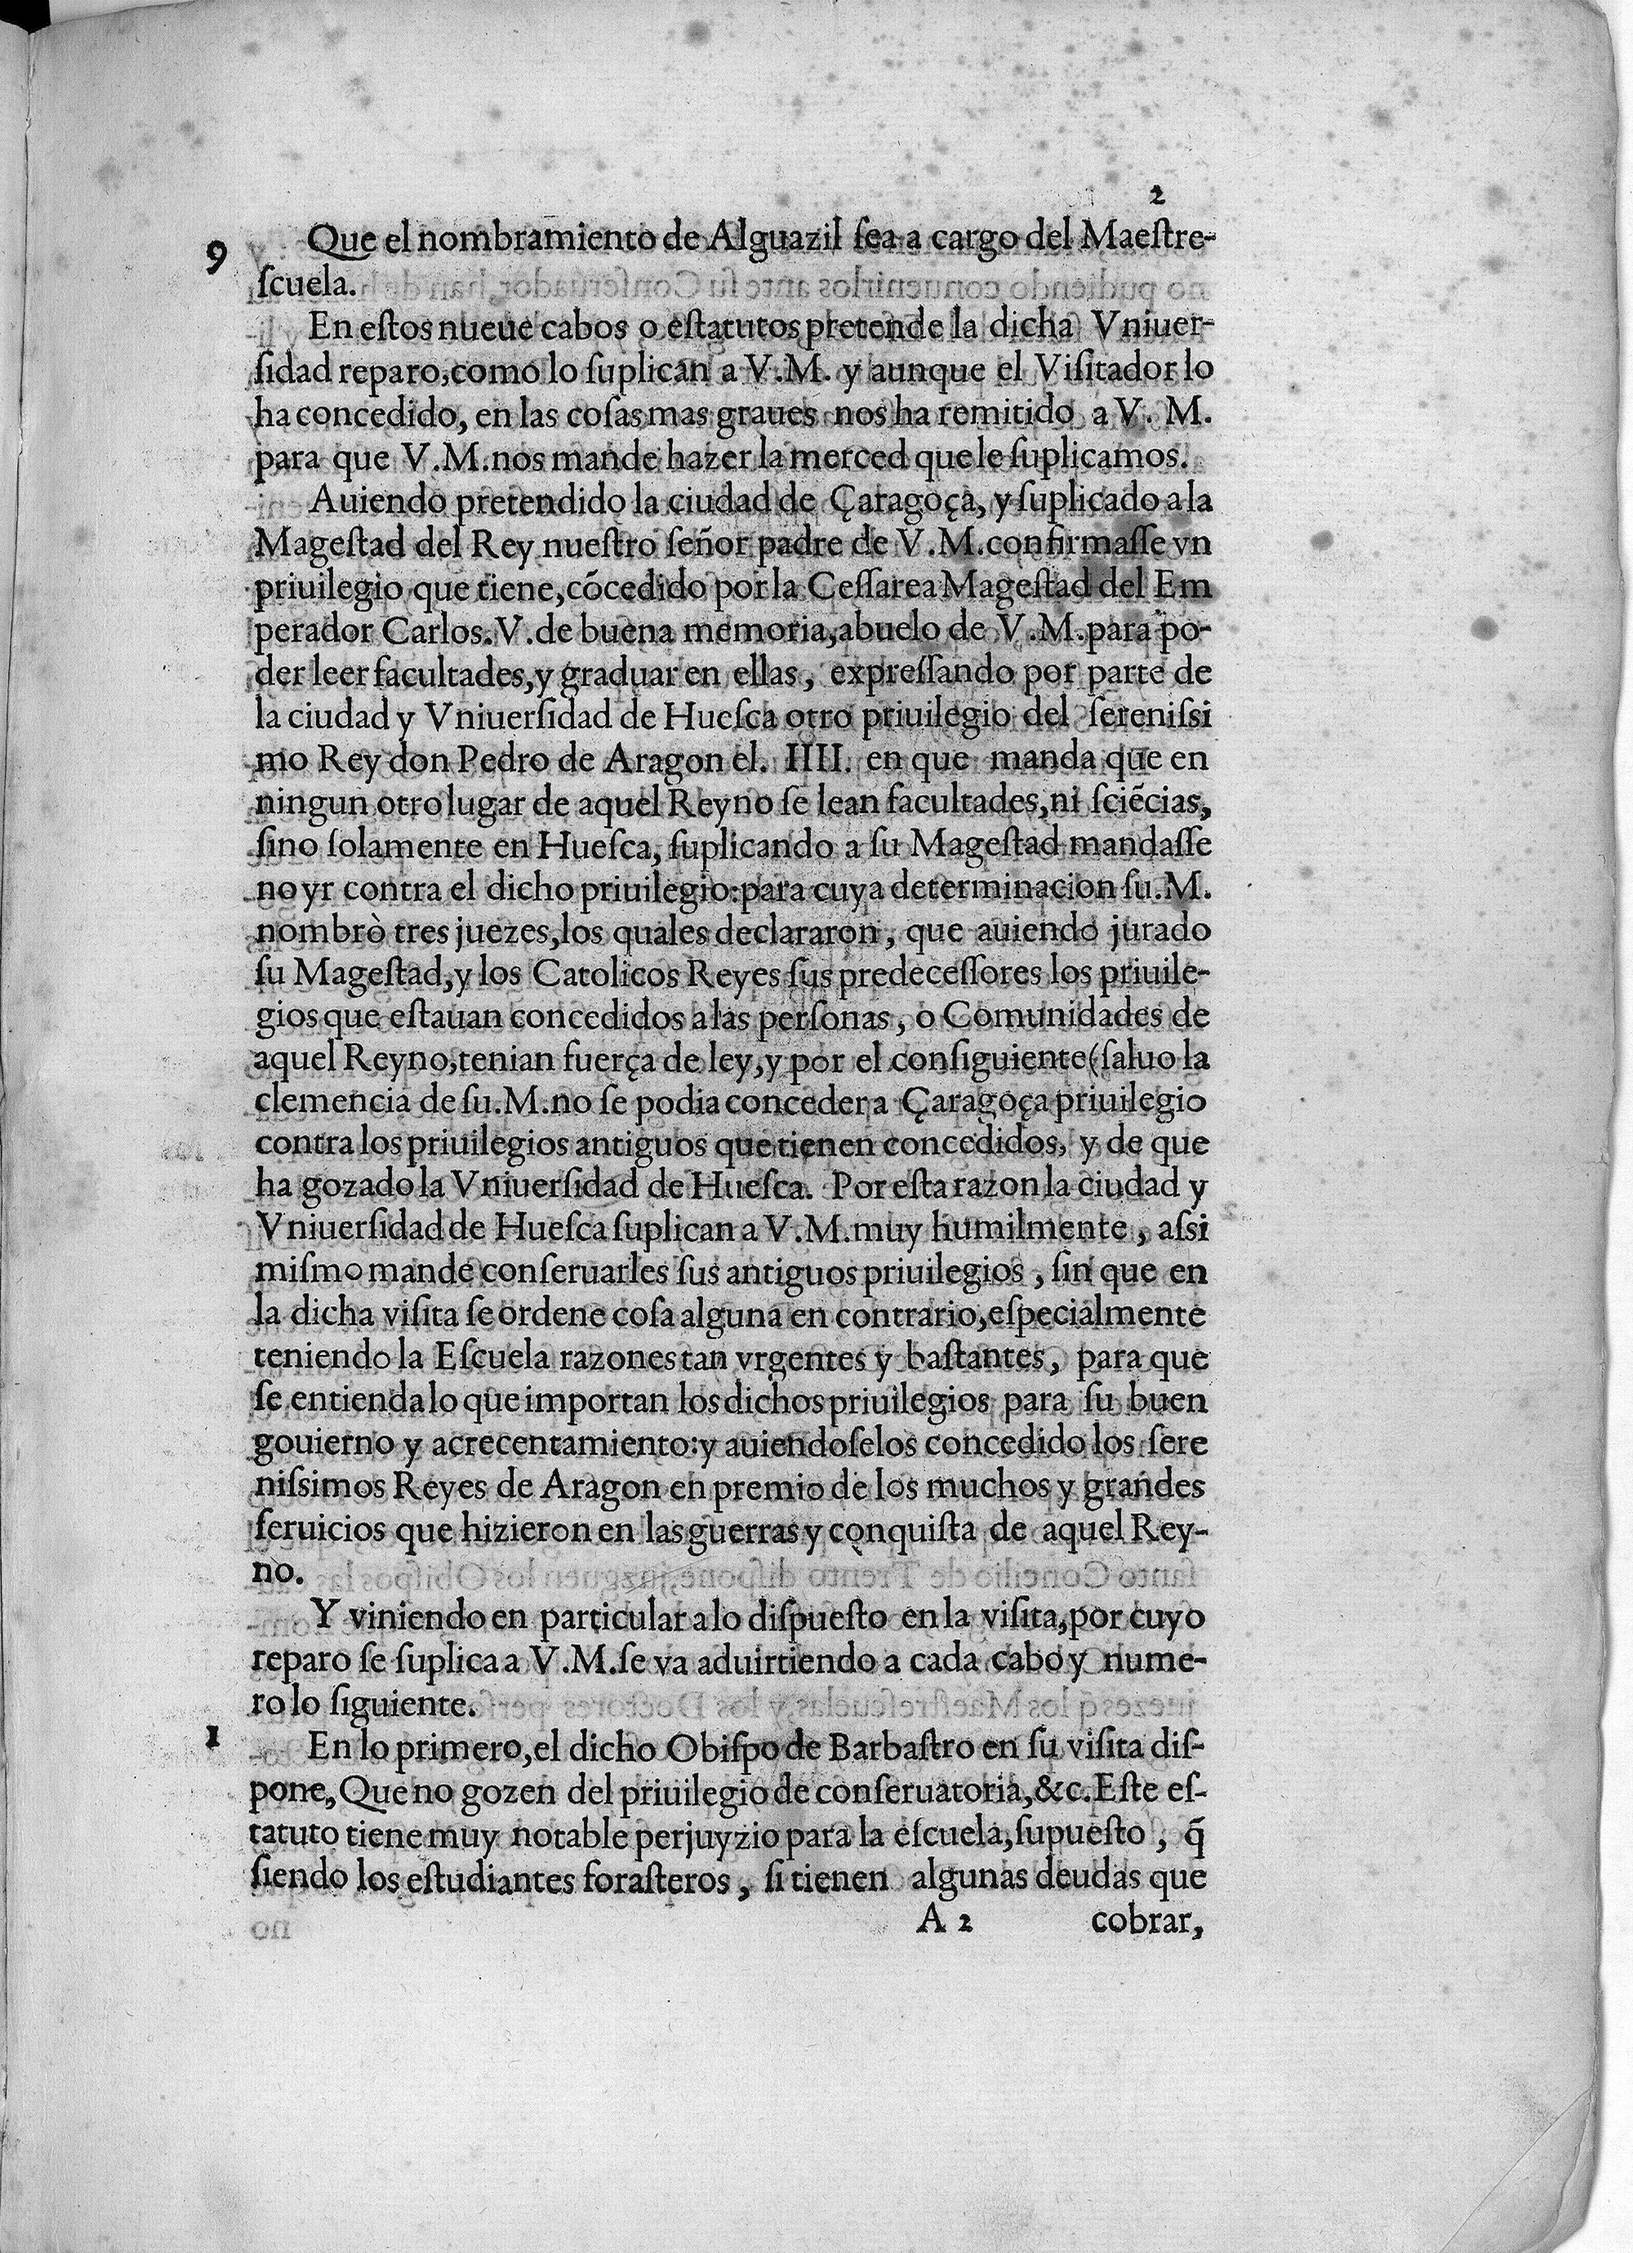 2
9 Que el nombramiento de Alguazil ſea a cargo del Maeſtre-
ſcuela.
En eſtos nueue cabos o eſtatutos pretende la dicha Vniuer-
ſidad reparo, como lo ſuplican a V.M. y aunque el Viſitador lo
ha concedido, en las coſas mas graues nos ha remitido a V. M.
para que V.M. nos mande hazer la merced que le ſuplicamos.
Auiendo pretendido la ciudad de Çaragoça, y ſuplicado a la
Mageſtad del Rey nueſtro ſeñor padre de V.M. confirmaſſe vn
priuilegio que tiene, cōcedido por la Ceſſarea Mageſtad del Em
perador Carlos. V. de buena memoria, abuelo de V.M. para po-
der leer facultades, y graduar en ellas, expreſſando por parte de
la ciudad y Vniuerſidad de Hueſca otro priuilegio del ſereniſsi
mo Rey don Pedro de Aragon el. IIII. en que manda que en
ningun otro lugar de aquel Reyno ſe lean facultades, ni ſciēcias,
ſino ſolamente en Hueſca, ſuplicando a ſu Mageſtad mandaſſe
no yr contra el dicho priuilegio: para cuya determinacion ſu. M.
nombrò tres juezes, los quales declararon, que auiendo jurado
ſu Mageſtad, y los Catolicos Reyes ſus predeceſſores los priuile-
gios que eſtauan concedidos a las perſonas, o Comunidades de
aquel Reyno, tenian fuerça de ley, y por el conſiguiente (ſaluo la
clemencia de ſu. M. no ſe podia conceder a Çaragoça priuilegio
contra los priuilegios antiguos que tienen concedidos, y de que
ha gozado la Vniuerſidad de Hueſca. Por eſta razon la ciudad y
Vniuerſidad de Hueſca ſuplican a V.M. muy humilmente, aſsi
miſmo mande conſeruarles ſus antiguos priuilegios, ſin que en
la dicha viſita ſe ordene coſa alguna en contrario, eſpecialmente
teniendo la Eſcuela razones tan vrgentes y baſtantes, para que
ſe entienda lo que importan los dichos priuilegios para ſu buen
gouierno y acrecentamiento: y auiendoſelos concedido los ſere
niſsimos Reyes de Aragon en premio de los muchos y grandes
ſeruicios que hizieron en las guerras y conquiſta de aquel Rey-
no.
Y viniendo en particular a lo diſpueſto en la viſita, por cuyo
reparo ſe ſuplica a V.M. ſe va aduirtiendo a cada cabo y nume-
ro lo ſiguiente.
1 En lo primero, el dicho Obiſpo de Barbaſtro en ſu viſita diſ-
pone, Que no gozen del priuilegio de conſeruatoria, &c. Eſte eſ-
tatuto tiene muy notable perjuyzio para la eſcuela, ſupueſto, q̃
ſiendo los eſtudiantes foraſteros, ſi tienen algunas deudas que
A 2 cobrar,